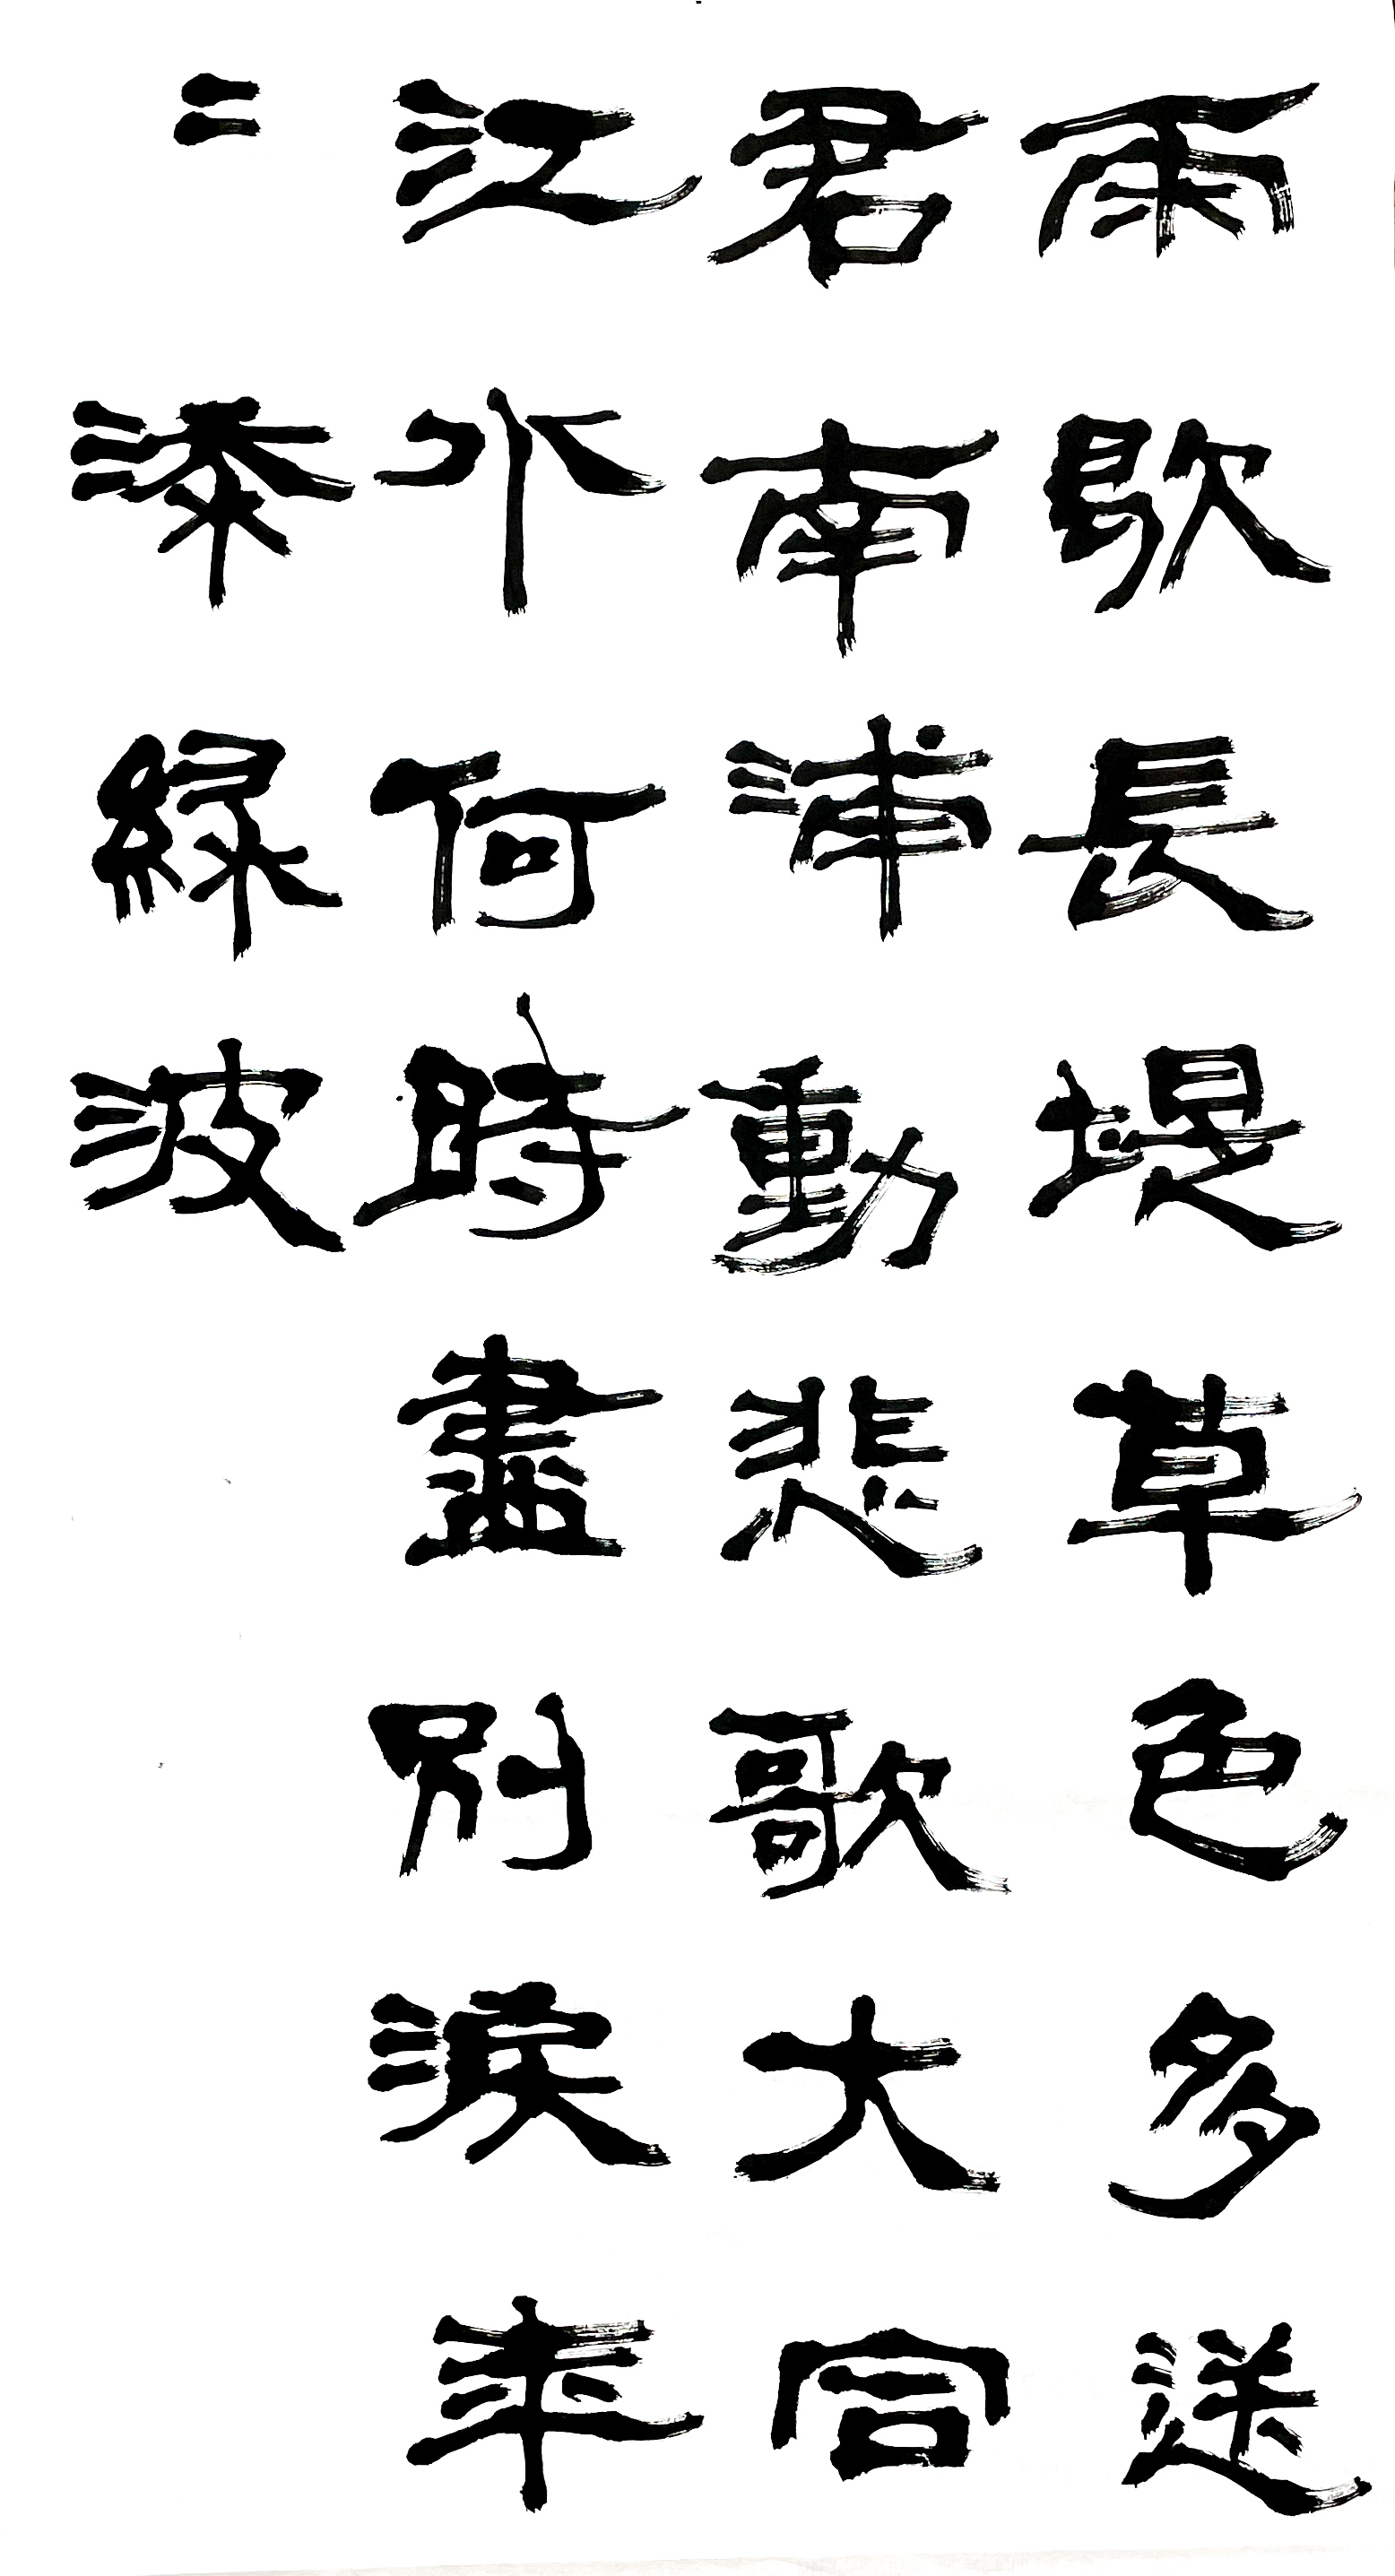 雨歇長堤草色多送
君南浦動悲歌大同
江水何時盡別淚年
〻添緑波